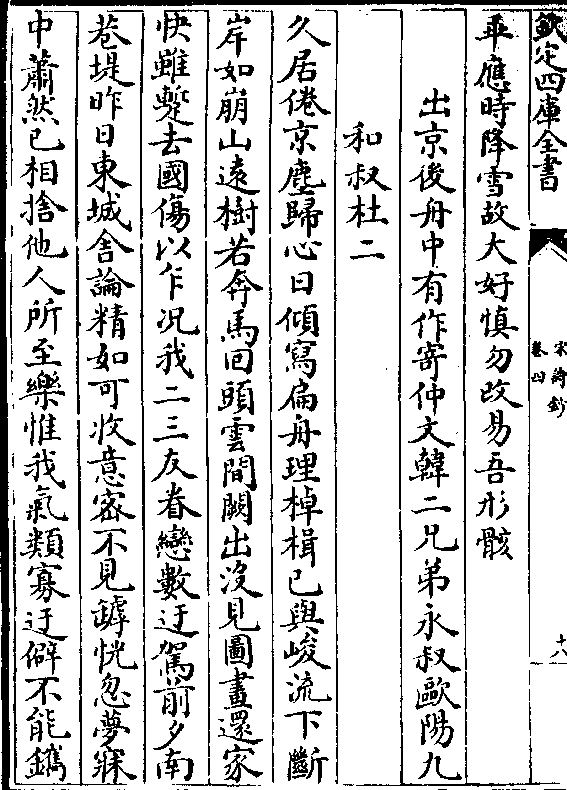 欽定四庫全書
宋詩鈔
卷四
十八
平應時降雪故大好慎勿改易吾形骸
出京後舟中有作寄仲文韓二兄弟永叔歐陽九
和叔杜二
久居倦京塵歸心日傾寫扁舟理棹楫已與峻流下斷
岸如崩山遠樹若奔馬回頭雲間闕出沒見圖畫還家
快雖甦去國傷以乍况我二三友眷戀數迂駕前夕南
巷堤昨日東城舍論精如可收意密不見罅恍忽夢寐
中蕭然已相捨他人所至樂惟我氣類寡迂僻不能鐫